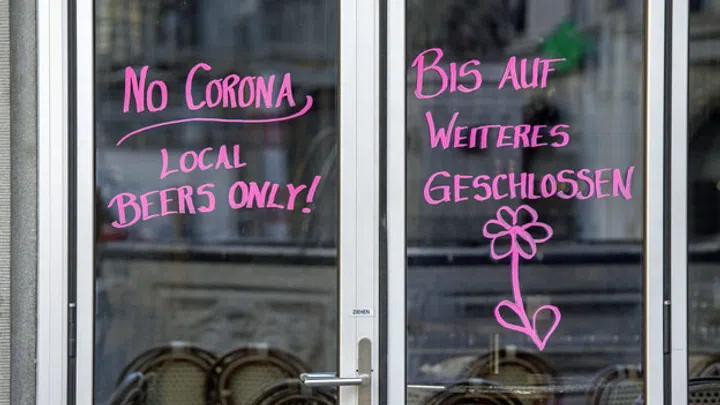 No Corona
Local
Beers only!
Bis auf
Weiteres
Geschlossen
ZIEHEN